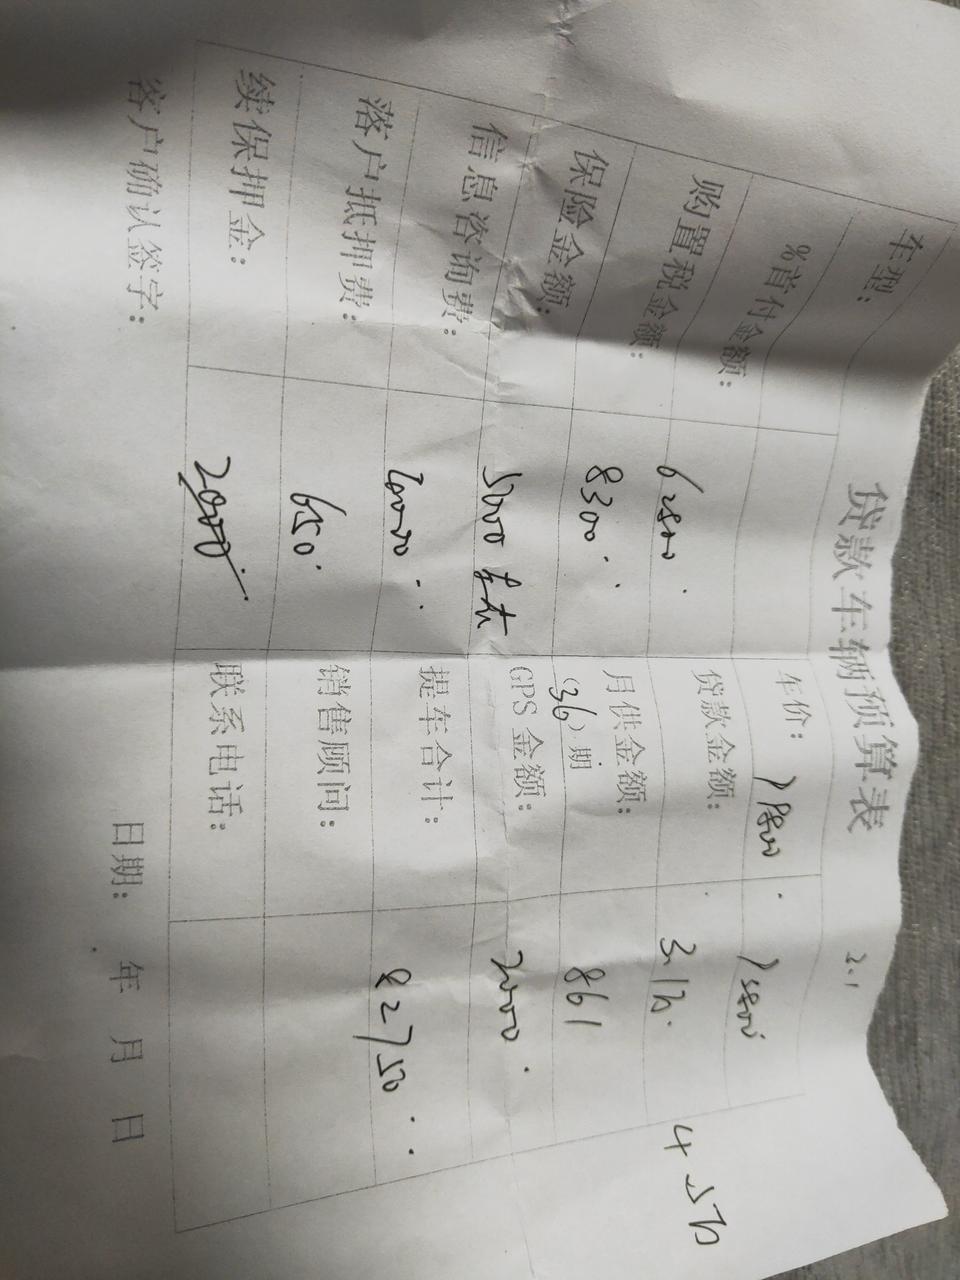 贷款车辆预算表
2.1
车型： 车价： 7 5800
%首付金额： 贷款金额： 3.1万 4.5万
购置税金额： 6500 月供金额： 861
保险金额： 8300 (36)期
信息咨询费： 5000 GPS金额： 2000
落户抵押费： 提车合计： 82750
续保押金： 650 销售顾问：
客户确认签字： 2000 联系电话：
日期： 年 月 日